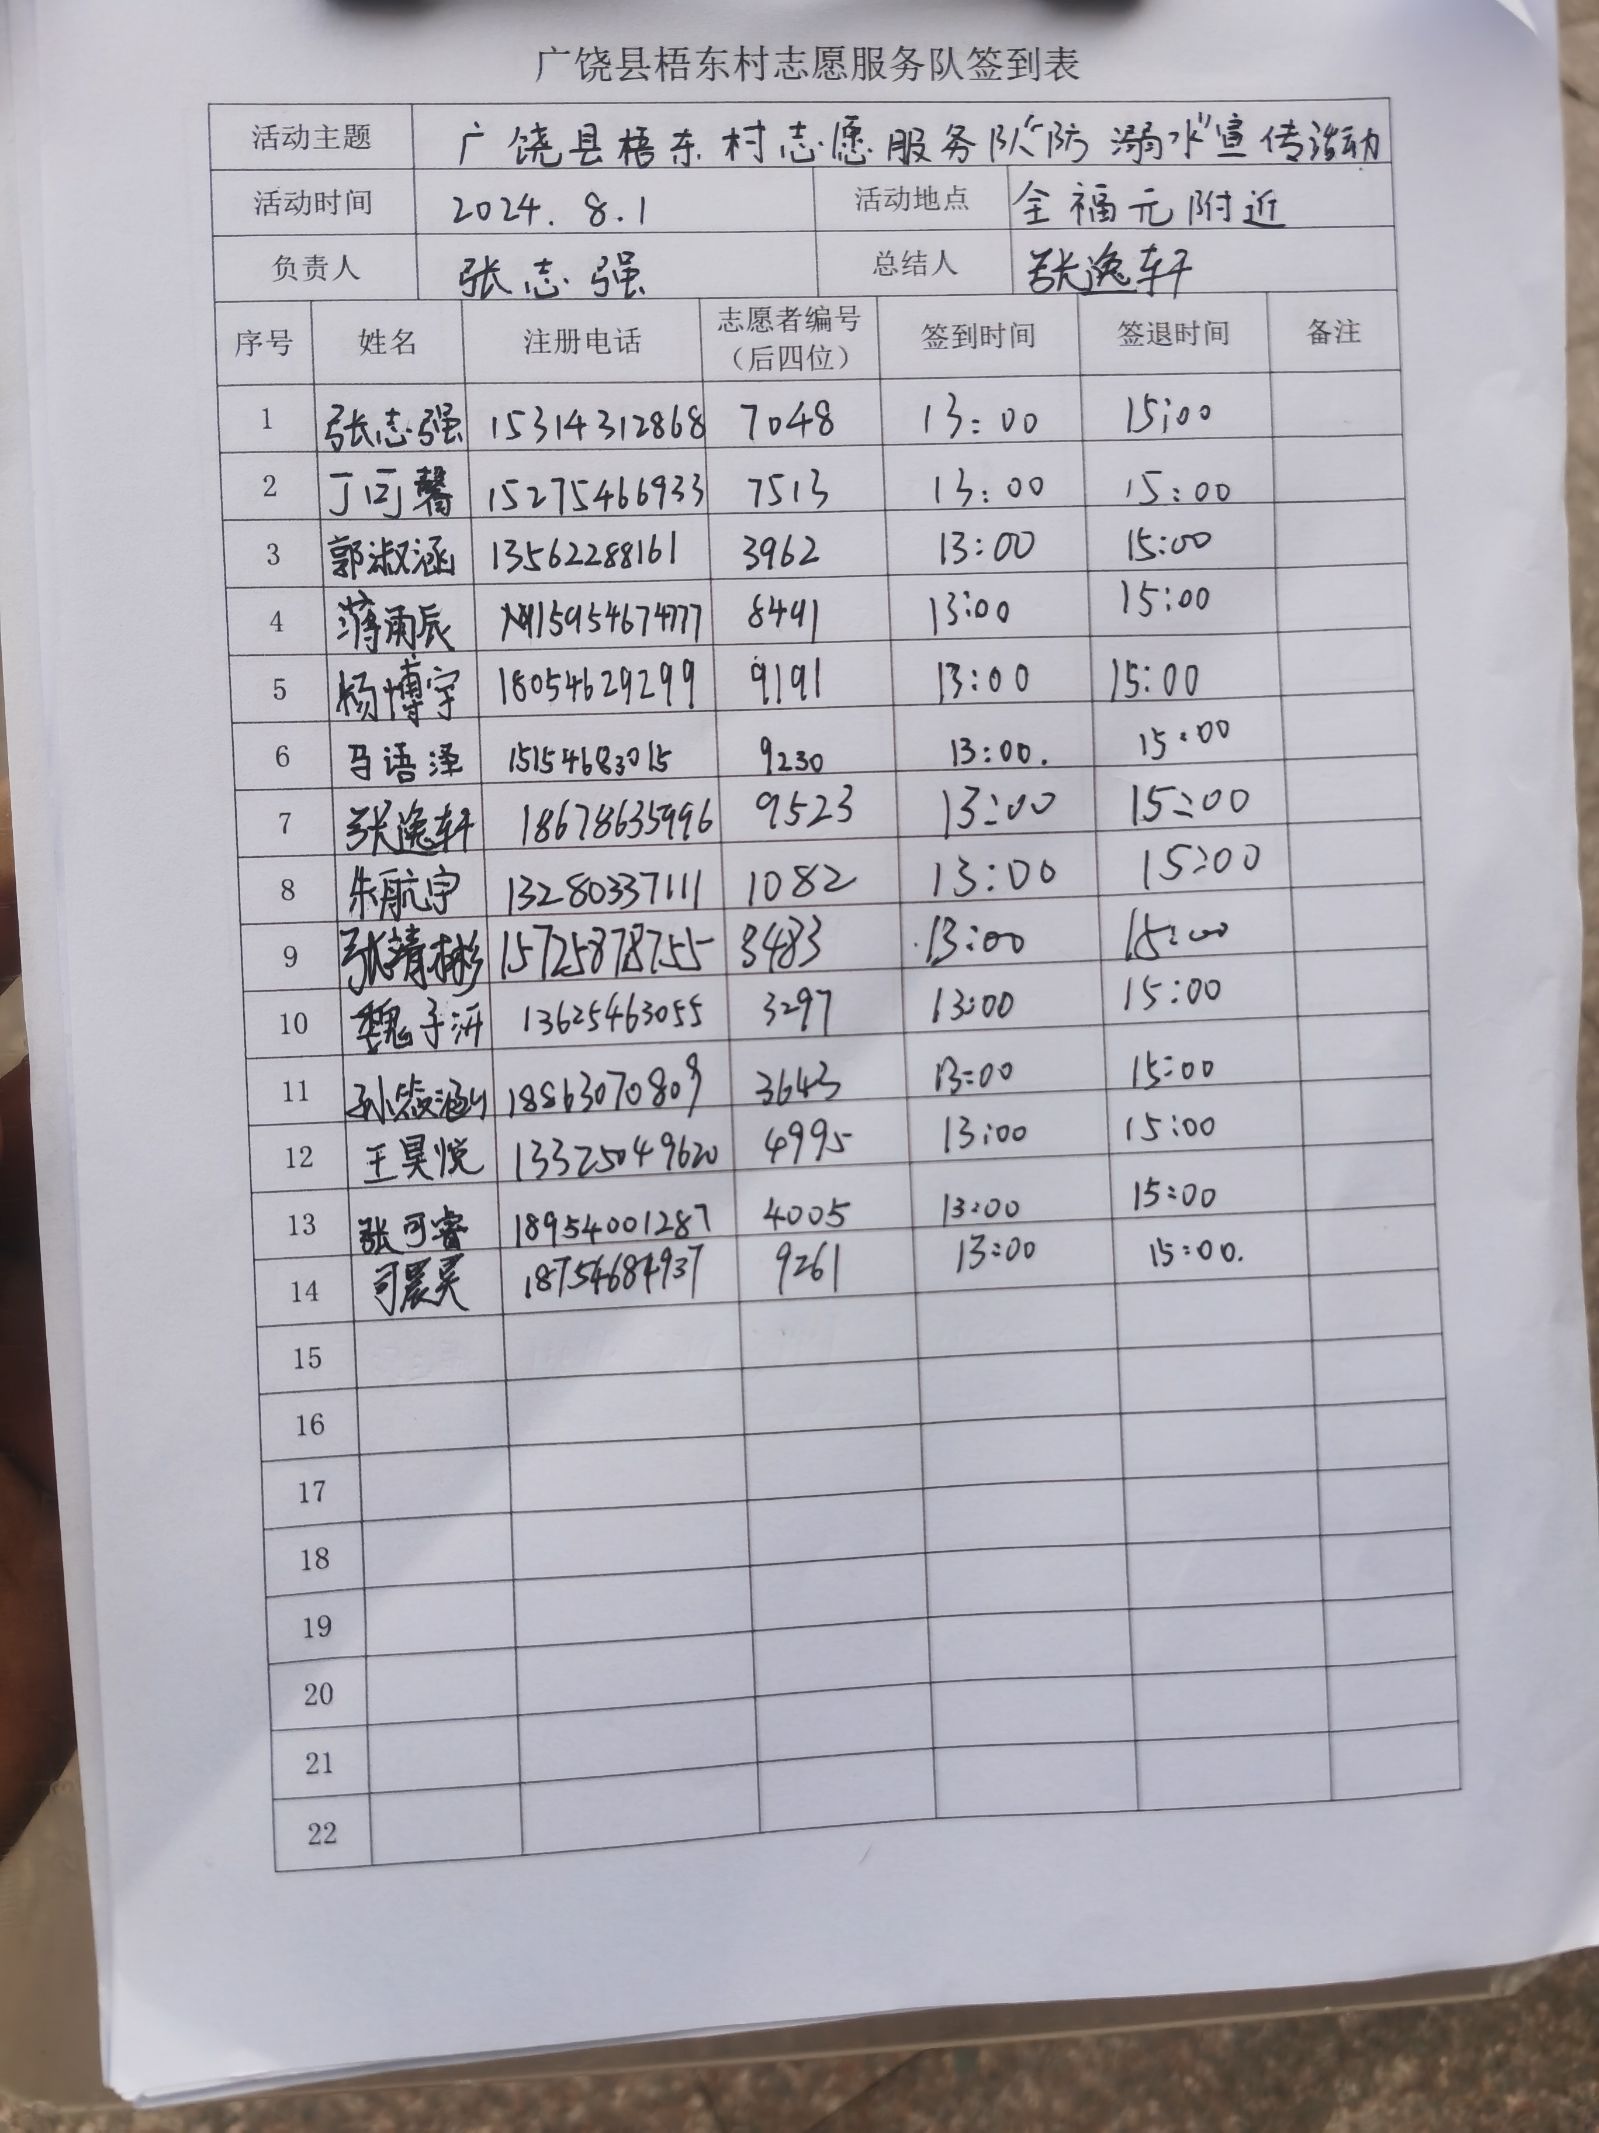 广饶县梧东村志愿服务队签到表
活动主题 广饶县梧东村志愿服务队“防溺水”宣传活动
活动时间 2024.8.1 活动地点 全福元附近
负责人 张志强 总结人 张逸轩
序号 姓名 注册电话 志愿者编号（后四位） 签到时间 签退时间 备注
1 张志强 15314312868 7048 13:00 15:00
2 丁可馨 15275466933 7513 13:00 15:00
3 郭淑涵 13562288161 3962 13:00 15:00
4 蒋雨辰 15954674777 8491 13:00 15:00
5 杨博宇 18054629299 9191 13:00 15:00
6 马语泽 15154683015 9230 13:00. 15:00
7 张逸轩 18678635996 9523 13:00 15:00
8 朱航宇 13280337111 1082 13:00 15:00
9 张靖彬 15725878755 3483 13:00 15:00
10 魏子沂 13625463055 3297 13:00 15:00
11 孙筱涵 18863070809 3643 13:00 15:00
12 王昊悦 13325049620 4995 13:00 15:00
13 张可睿 18954001287 4005 13:00 15:00
14 司晨昊 18754684937 9261 13:00 15:00.
15
16
17
18
19
20
21
22